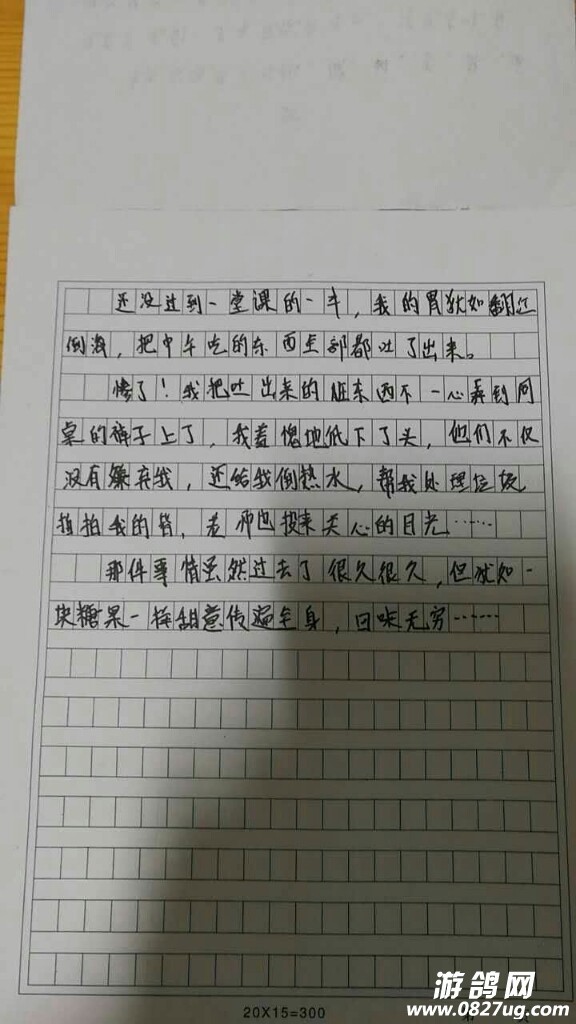 还没过到一堂课的一半，我的胃犹如翻江
倒海，把中午吃的东西全部都吐了出来。
惨了！我把吐出来的脏东西不一心弄到同
桌的裤子上了，我羞愧地低下了头，他们不仅
没有嫌弃我，还给我倒热水，帮我处理垃圾
拍拍我的背，老师也投来关心的目光……
那件事情虽然过去了很久很久，但犹如一
块糖果一样甜意传遍全身，回味无穷……
20X15=300
游鸽网
www.0827ug.com